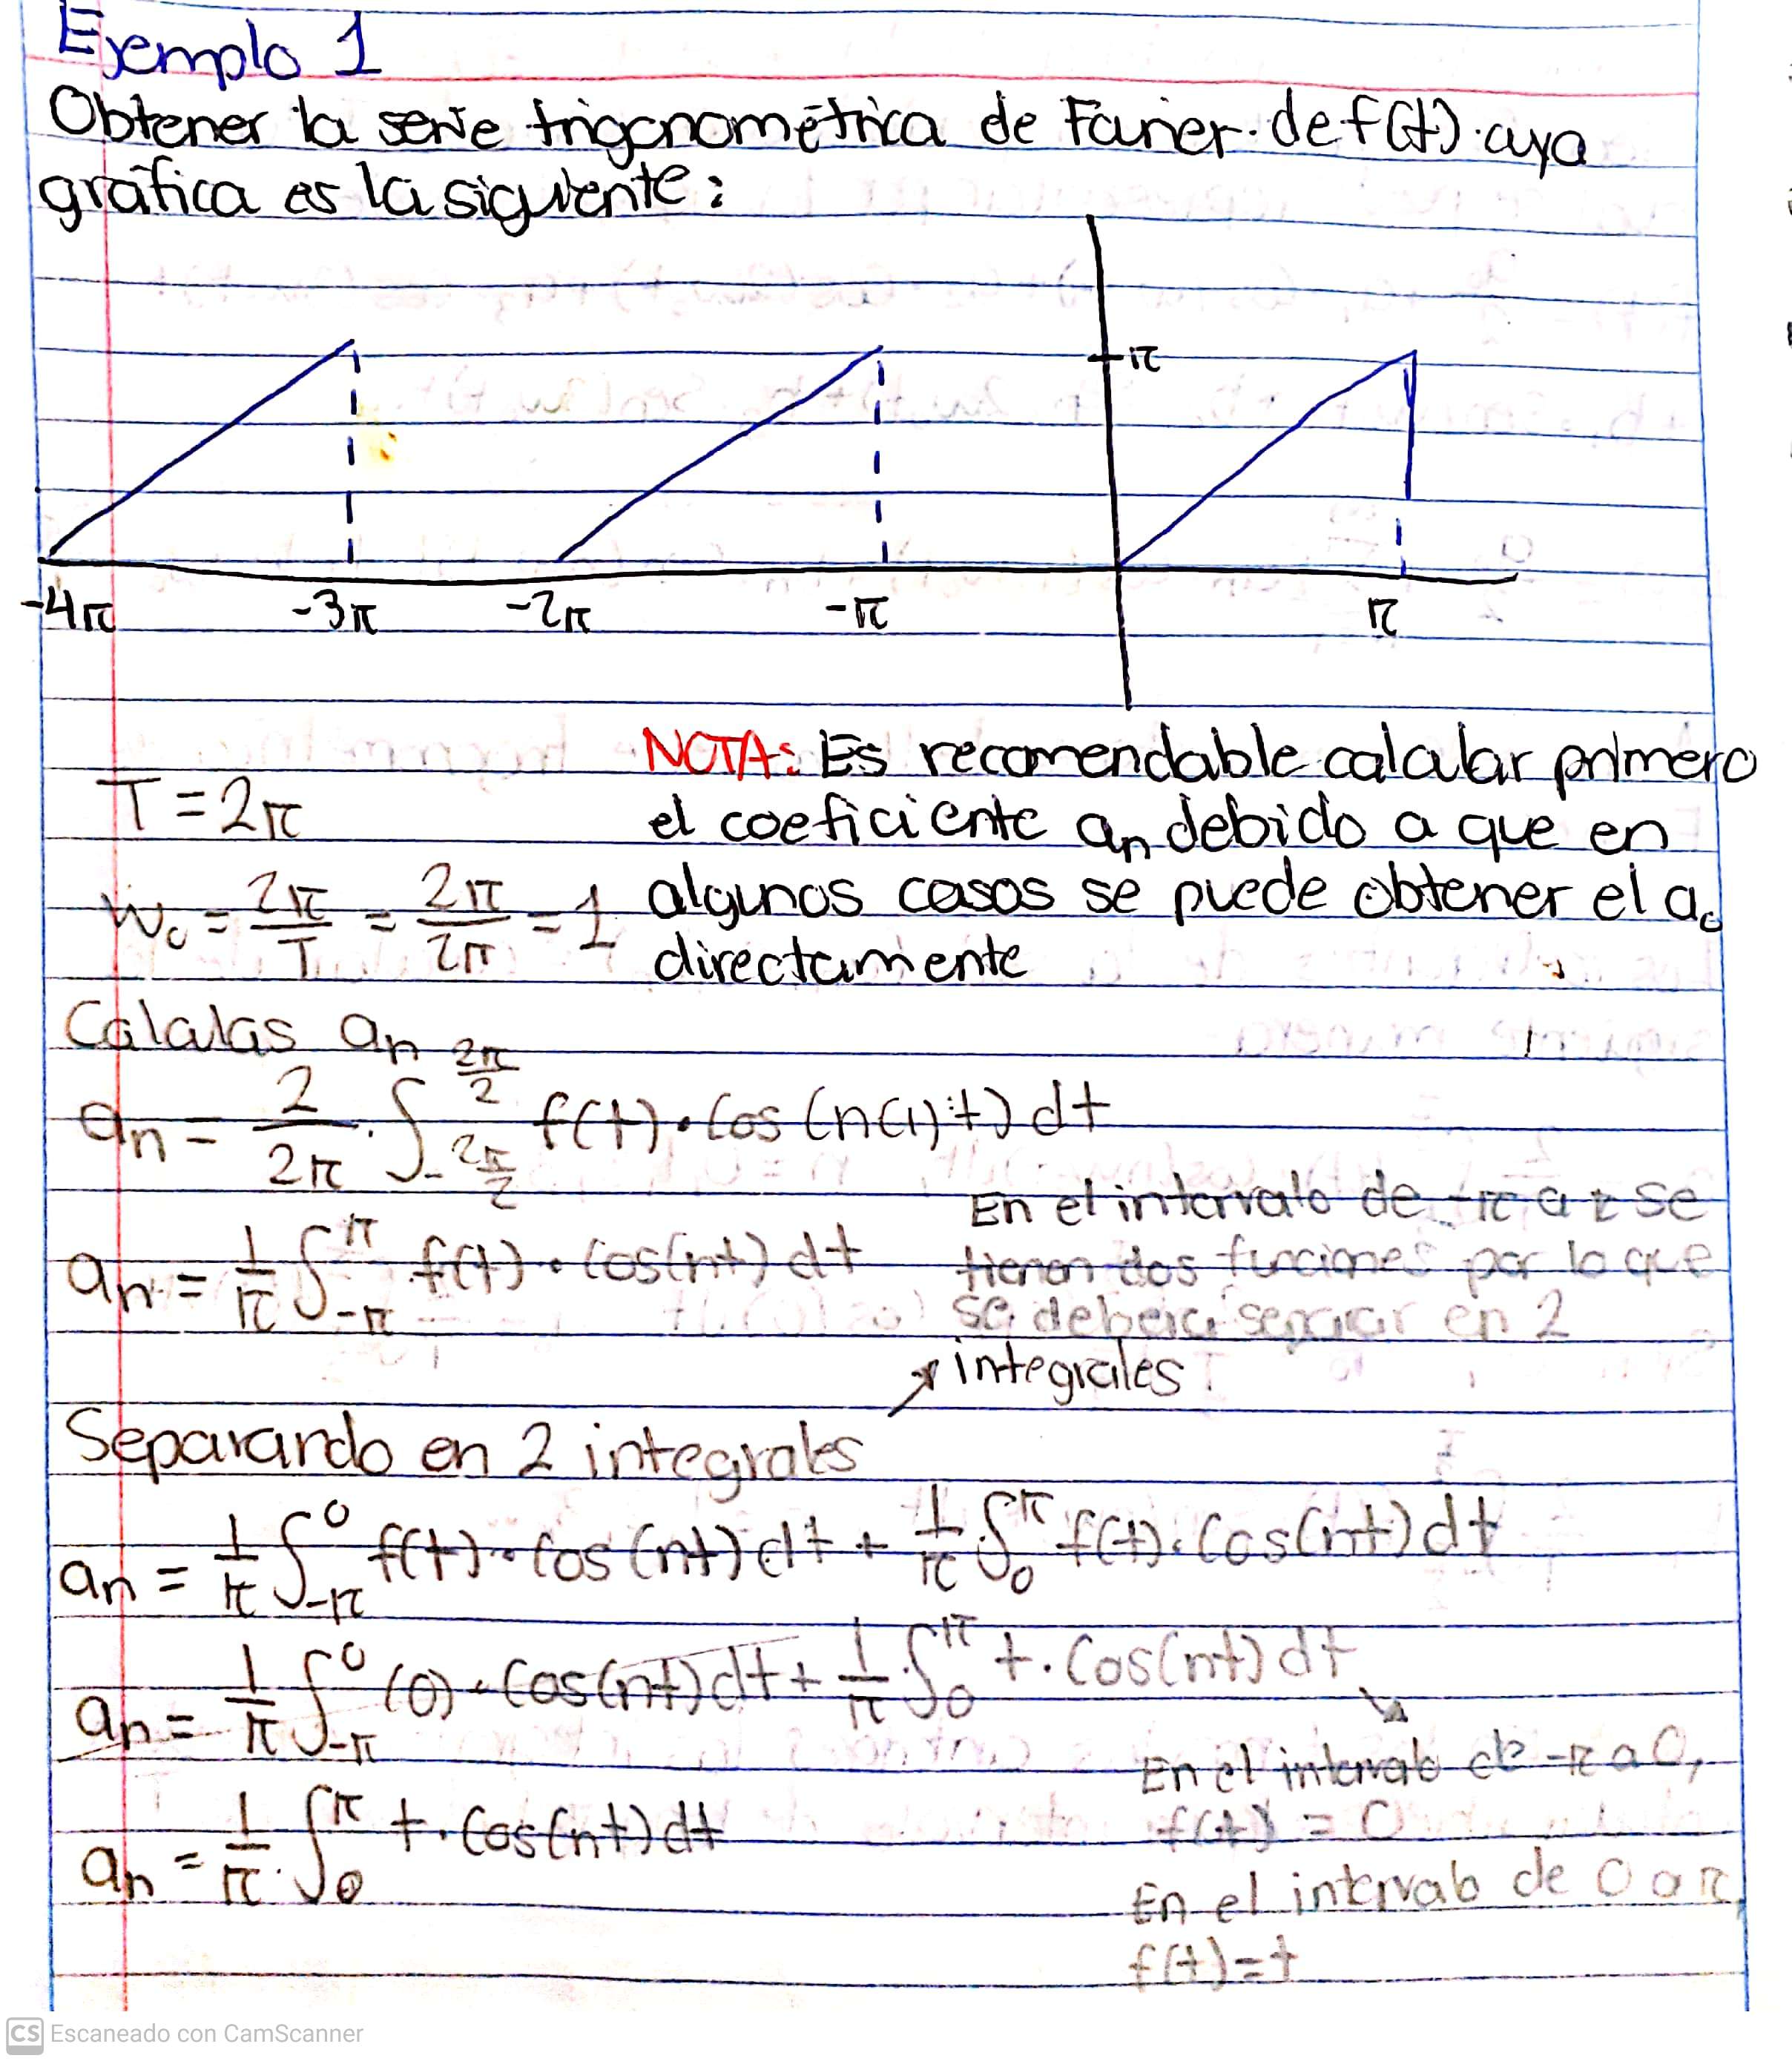 Ejemplo 1
Obtener la serie trigonométrica de Fourier de f(t) cuya
gráfica es la siguiente:
π
-4π -3π -2π -π π
NOTA: Es recomendable calcular primero
el coeficiente an debido a que en
algunos casos se puede obtener el a₀
directamente
T = 2π
w₀ = 2π/T = 2π/2π = 1
Calculas an
an = 2/2π · ∫_{-2π/2}^{2π/2} f(t) · Cos(n(1)t) dt
an = 1/π ∫_{-π}^{π} f(t) · Cos(nt) dt
En el intervalo de -π a π se
tienen dos funciones por lo que
se deberá separar en 2
integrales.
Separando en 2 integrales
an = 1/π ∫_{-π}^{0} f(t) · Cos(nt) dt + 1/π · ∫_{0}^{π} f(t) · Cos(nt) dt
an = 1/π ∫_{-π}^{0} (0) · Cos(nt) dt + 1/π · ∫_{0}^{π} t · Cos(nt) dt
En el intervalo de -π a 0,
f(t) = 0
an = 1/π · ∫_{0}^{π} t · Cos(nt) dt
En el intervalo de 0 a π,
f(t) = t
CS Escaneado con CamScanner